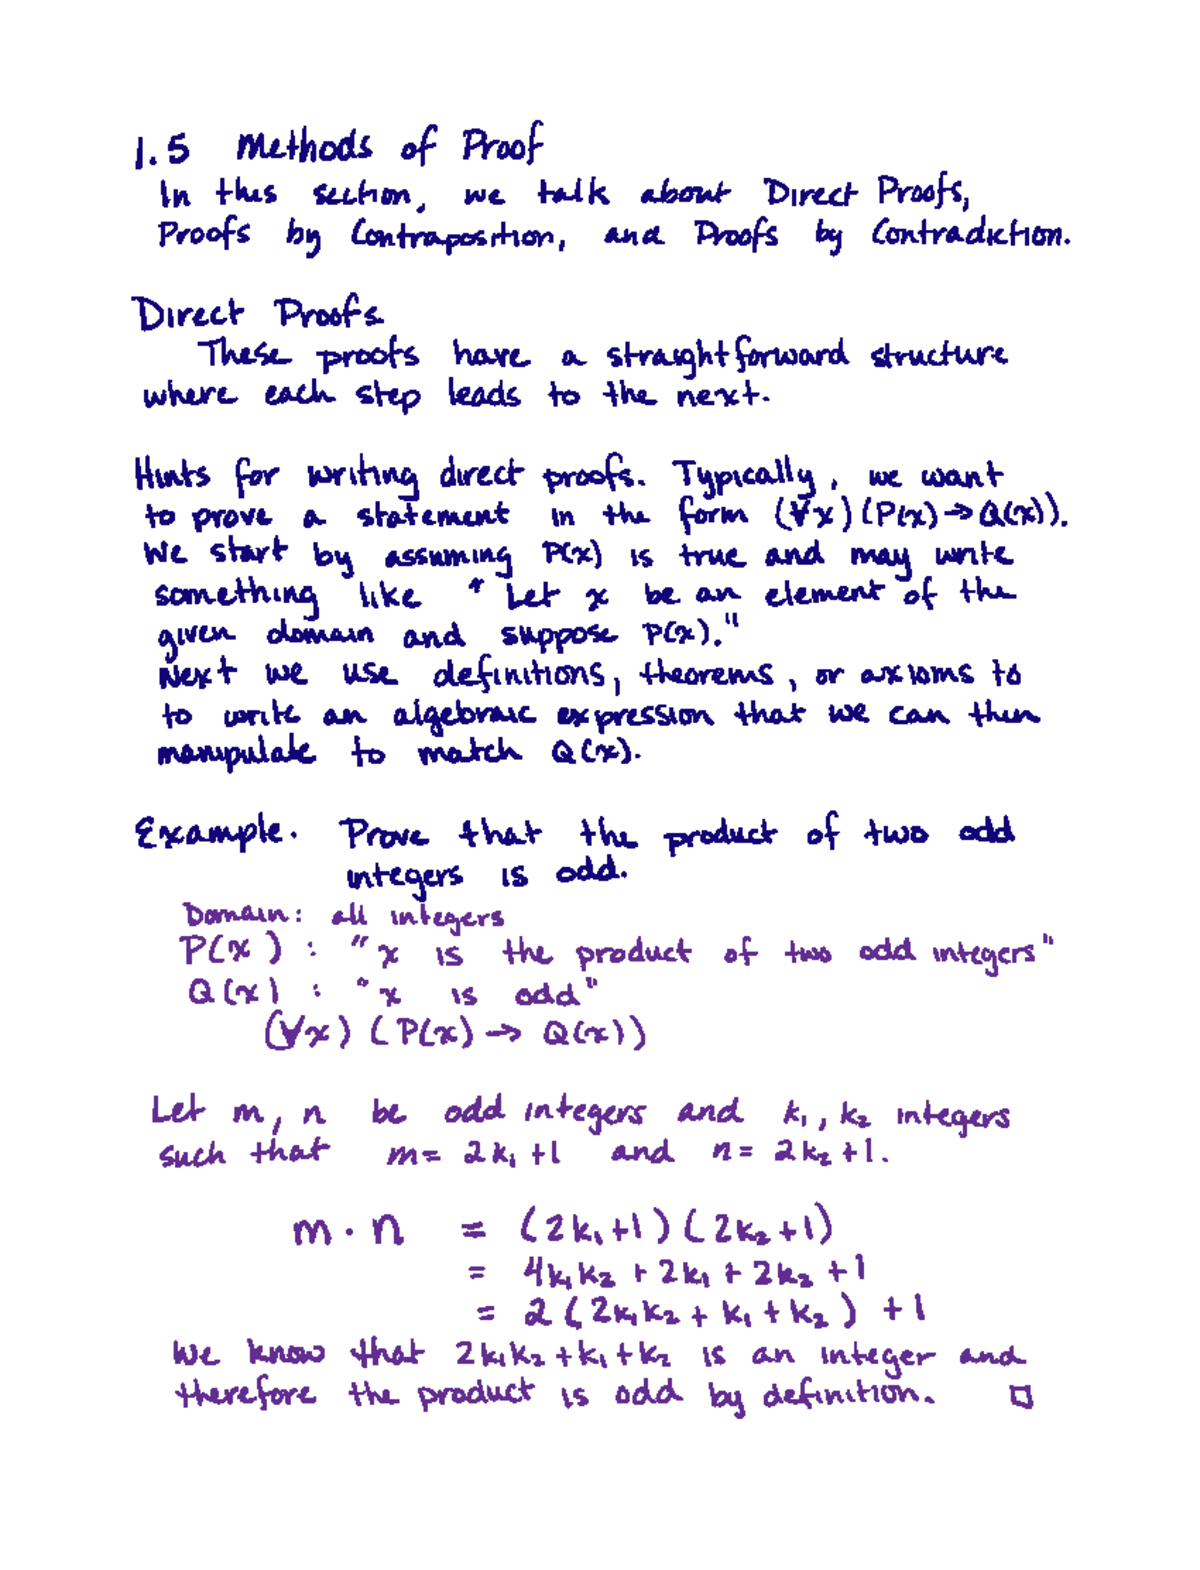 1.5 Methods of Proof
In this section, we talk about Direct Proofs,
Proofs by Contraposition, and Proofs by Contradiction.
Direct Proofs
These proofs have a straightforward structure
where each step leads to the next.
Hints for writing direct proofs. Typically, we want
to prove a statement in the form (∀x)(P(x)→Q(x)).
We start by assuming P(x) is true and may write
something like "Let x be an element of the
given domain and suppose P(x)."
Next we use definitions, theorems, or axioms to
to write an algebraic expression that we can then
manipulate to match Q(x).
Example. Prove that the product of two odd
integers is odd.
Domain: all integers
P(x) : "x is the product of two odd integers"
Q(x) : "x is odd"
(∀x)(P(x) → Q(x))
Let m, n be odd integers and k₁, k₂ integers
such that m = 2k₁ + 1 and n = 2k₂ + 1.
m · n = (2k₁+1)(2k₂+1)
= 4k₁k₂ + 2k₁ + 2k₂ + 1
= 2(2k₁k₂ + k₁ + k₂) + 1
We know that 2k₁k₂ + k₁ + k₂ is an integer and
therefore the product is odd by definition. □